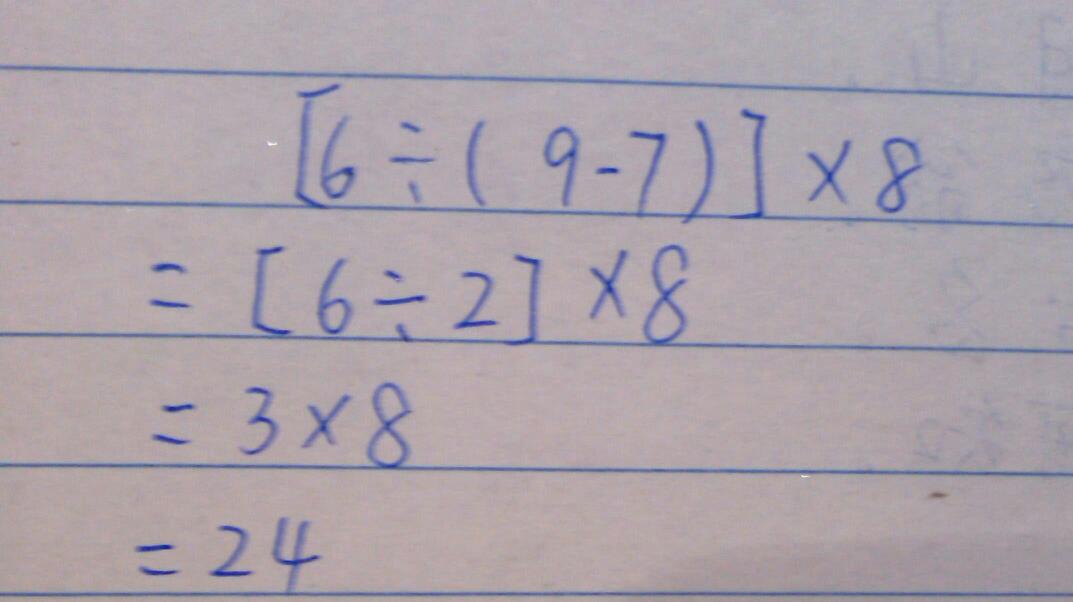 [6÷(9-7)]×8
=[6÷2]×8
=3×8
=24